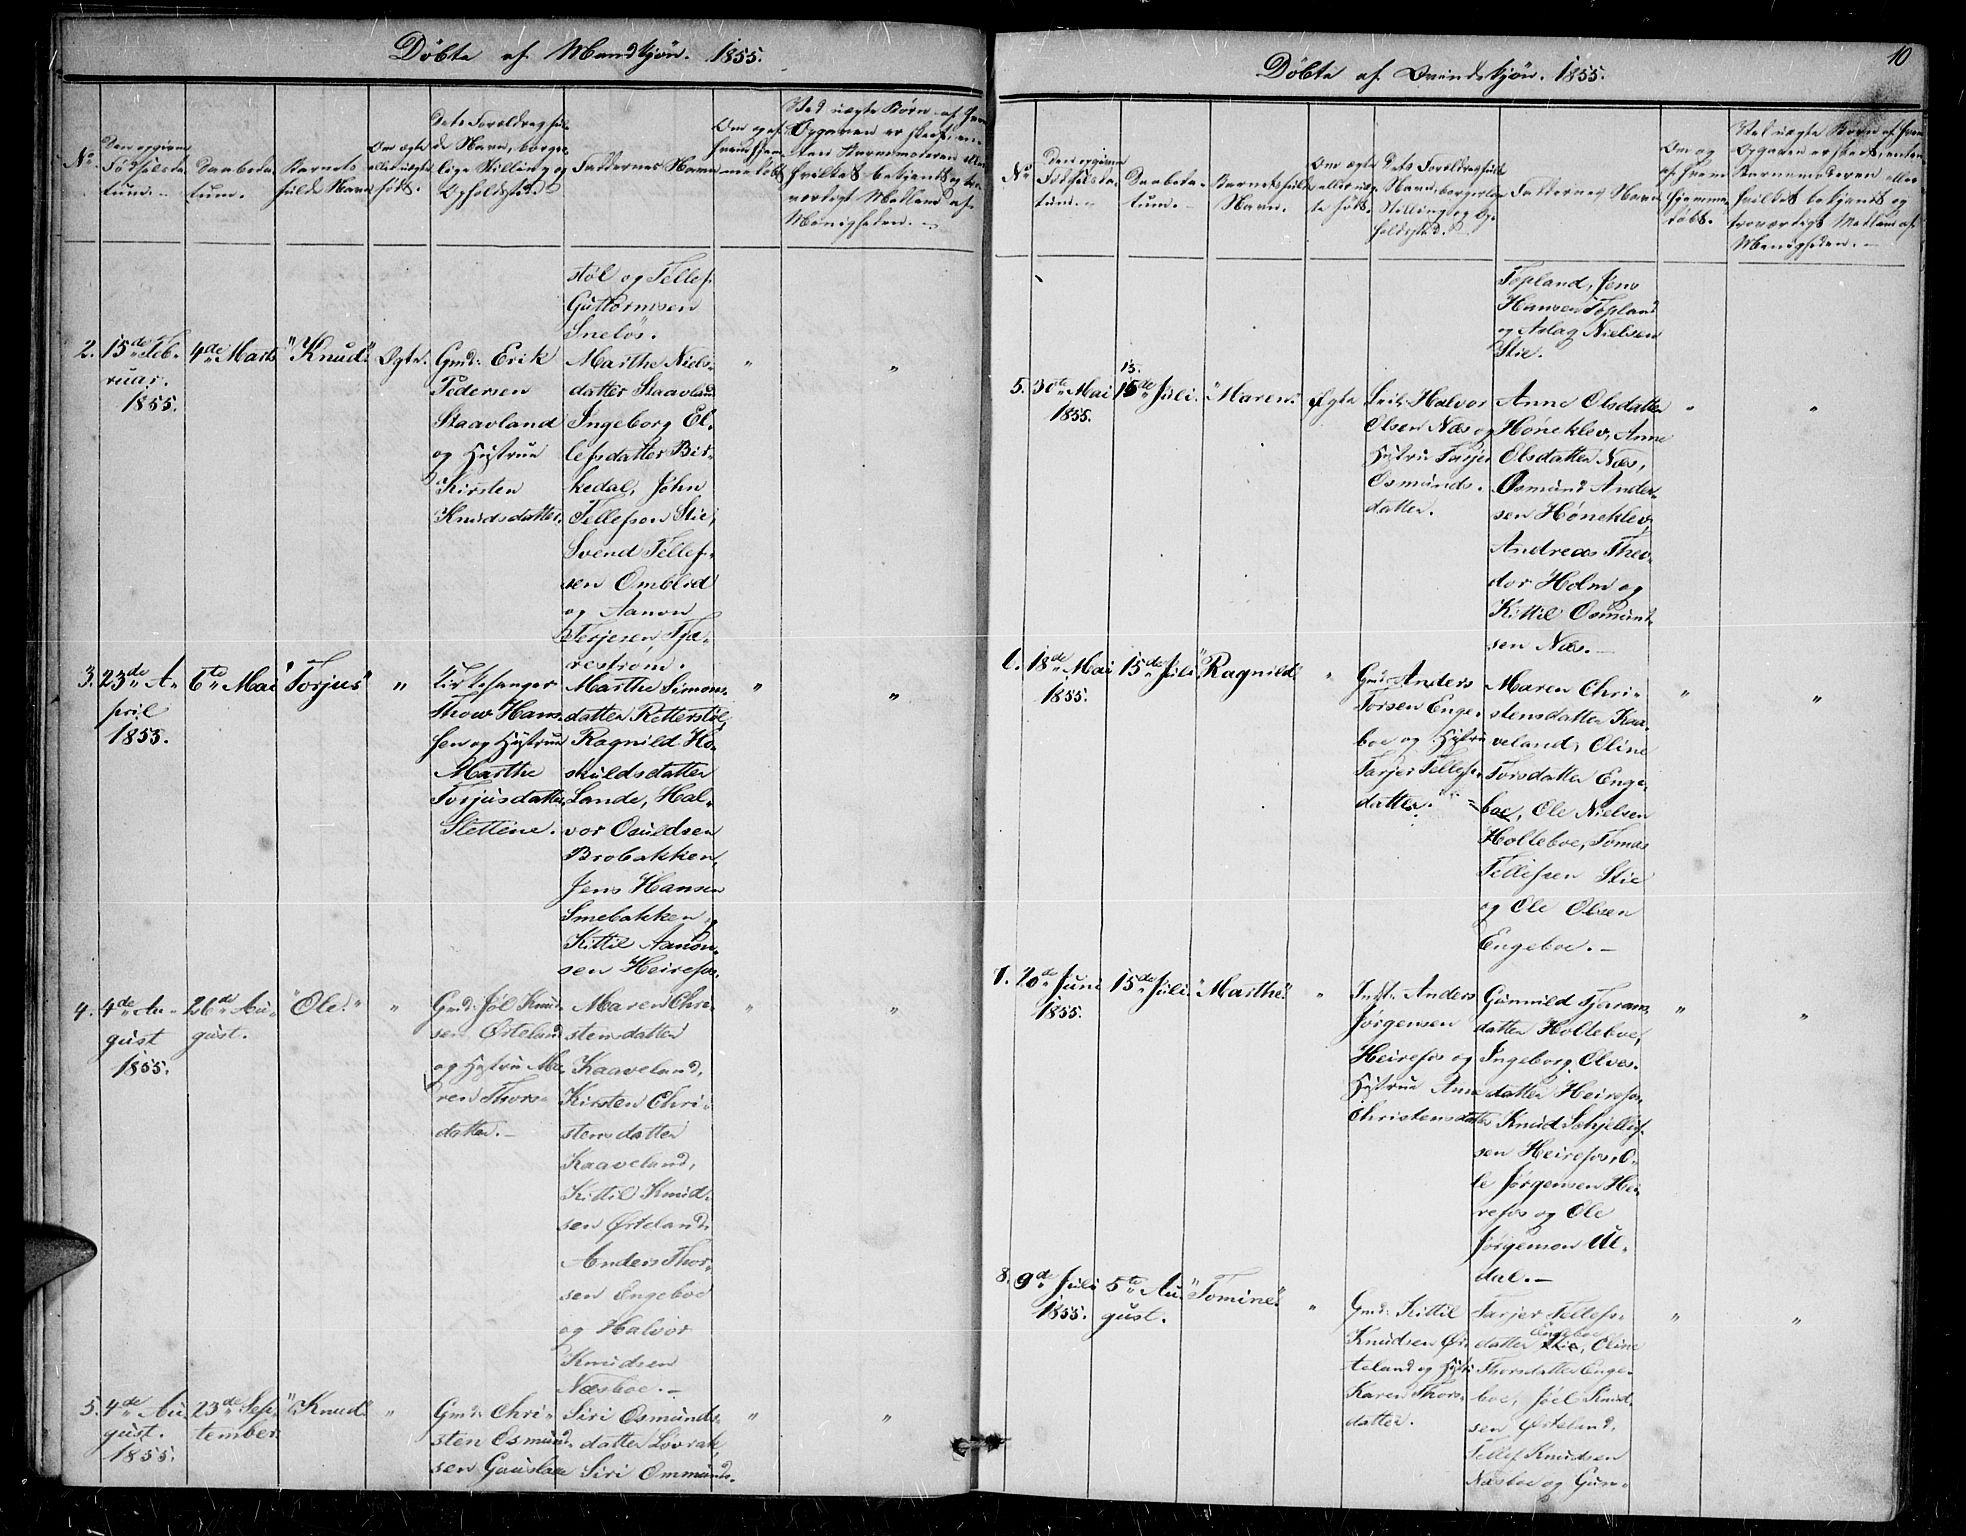 Døbte af Mandkjøn. 1855.
No.
Den opgivne Fødselsdatum.
Daabsdatum.
Barnets fulde Navn
Om ægte eller uægte født.
Dets Forældres fulde Navn, borgerlige Stilling og Opholdssted
Faddernes Navn
Om og af hvem hjemmedøbt
Ved uægte Børn af hvem Opgaven er skeet, enten Barnemoderen eller hvilket bekjendt og troværdigt Medlem af Menigheden.
støl og Tellef
Guttormsen
Sneløs.
2.
15de Feb-
ruar.
1855.
4de Marts
"Knud"
Ægte.
Gmd: Erik
Pedersen
Staavland
og Hustrue
Kirsten
Knudsdatter.
Marthe Niels-
datter Staavland
Ingeborg El-
lefsdatter Bir-
kedal, John
Tellefson Stie,
Svend Tellef-
sen Omblid
og Aanon
Terjesen, Tja-
restrøm.
"
"
3.
23de A-
pril
1855.
6te Mai
"Torjus"
"
Kirkesanger
Thow Han-
sen og Hustrue
Marthe
Torjusdatter
Slettene.
Marthe Simons-
datter Retterstøl,
Ragnild Ho-
skuldsdatter
Lande, Hal-
vor Osuldsen
Brobakken,
Jens Hansen
Smebakken og
Kittil Aanon-
sen Heirefos.
"
"
4.
4de Au-
gust
1855.
26de Au-
gust.
"Ole"
"
Gmd: Jøl Knud-
sen Ørteland
og Hustru Ma-
ren Thors-
datter.-
Maren Chri-
stensdatter
Kaaveland,
Kirsten Chri-
stensdatter
Kaaveland,
Kittil Knud-
sen Ørteland,
Anders Thor-
sen Engeboe
og Halvor
Knudsen
Næsboe.-
"
"
5.
4de Au-
gust.
1855.
23de Sep-
tember
"Knud"
"
Gmd: Chri-
sten Osmund-
sen Gauslaa
Siri Osmunds-
datter Lovrak,
Siri Ommunds-
"
"
10
Døbte af Qvindekjøn. 1855.
No.
Den opgivne Fødselsdatum.
Daabsdatum.
Barnets fulde Navn.
Om ægte eller uægte født.
Dets Forældres fulde Navn, borgerlige Stilling og Opholdssted.
Faddernes Navn
Om og af hvem hjemmedøbt.
Ved uægte Børn af hvem Opgaven er skeet, enten Barnemoderen eller hvilket bekjendt og troværdigt Medlem af Menigheden.
Topland, Jens
Hansen Topland
og Aslag Nielsen
Stie.
5.
30te Mai
1855.
15.
15de Juli.
"Maren"
Ægte
Halvor
Olsen Næs og
Hustru Tarjer
Osmunds-
datter.
Anne Olsdatter
Høneklev, Anne
Olsdatter Næs,
Osmund Ander-
sen Høneklev,
Andreas Theo-
dor Holm og
Kittil Osmund-
sen Næs.-
"
"
6.
18de Mai
1855.
15de Juli
"Ragnild"
"
Gmd: Anders
Torsen Enge-
boe og Hustru
Tarjer Tellefs-
datter.
Maren Chri-
stensdatter Kaa-
veland, Oline
Torsdatter Enge-
boe, Ole Nielsen
Holteboe, Tomas
Tellefsen Stie
og Ole Olsen
Engeboe.-
"
"
7.
20de Juni
1855.
15de Juli.
"Marthe"
"
Inst: Anders
Jørgensen
Heirefos og
Hustrue Anne
Christensdatter
Gunuld Tjeran-
datter Holteboe,
Ingeborg Olves-
datter Heirefos,
Knud Schjellig-
sen Heirefos, O-
le Jørgensen Hei-
refos og Ole
Jørgenson Ul-
dal.-
"
"
8.
9de Juli
1855.
5te Au-
gust.
"Tomine"
"
Gmd: Kittil
Knudsen Ør-
teland og Hustr:
Karen Thors-
datter.
Tarjer Tellefs-
datter Engeboe, Oline
Thorsdatter Enge-
boe, Jøel Knud-
sen Ørteland,
Tellef Knudsen
Næsboe og Gun-
"
"